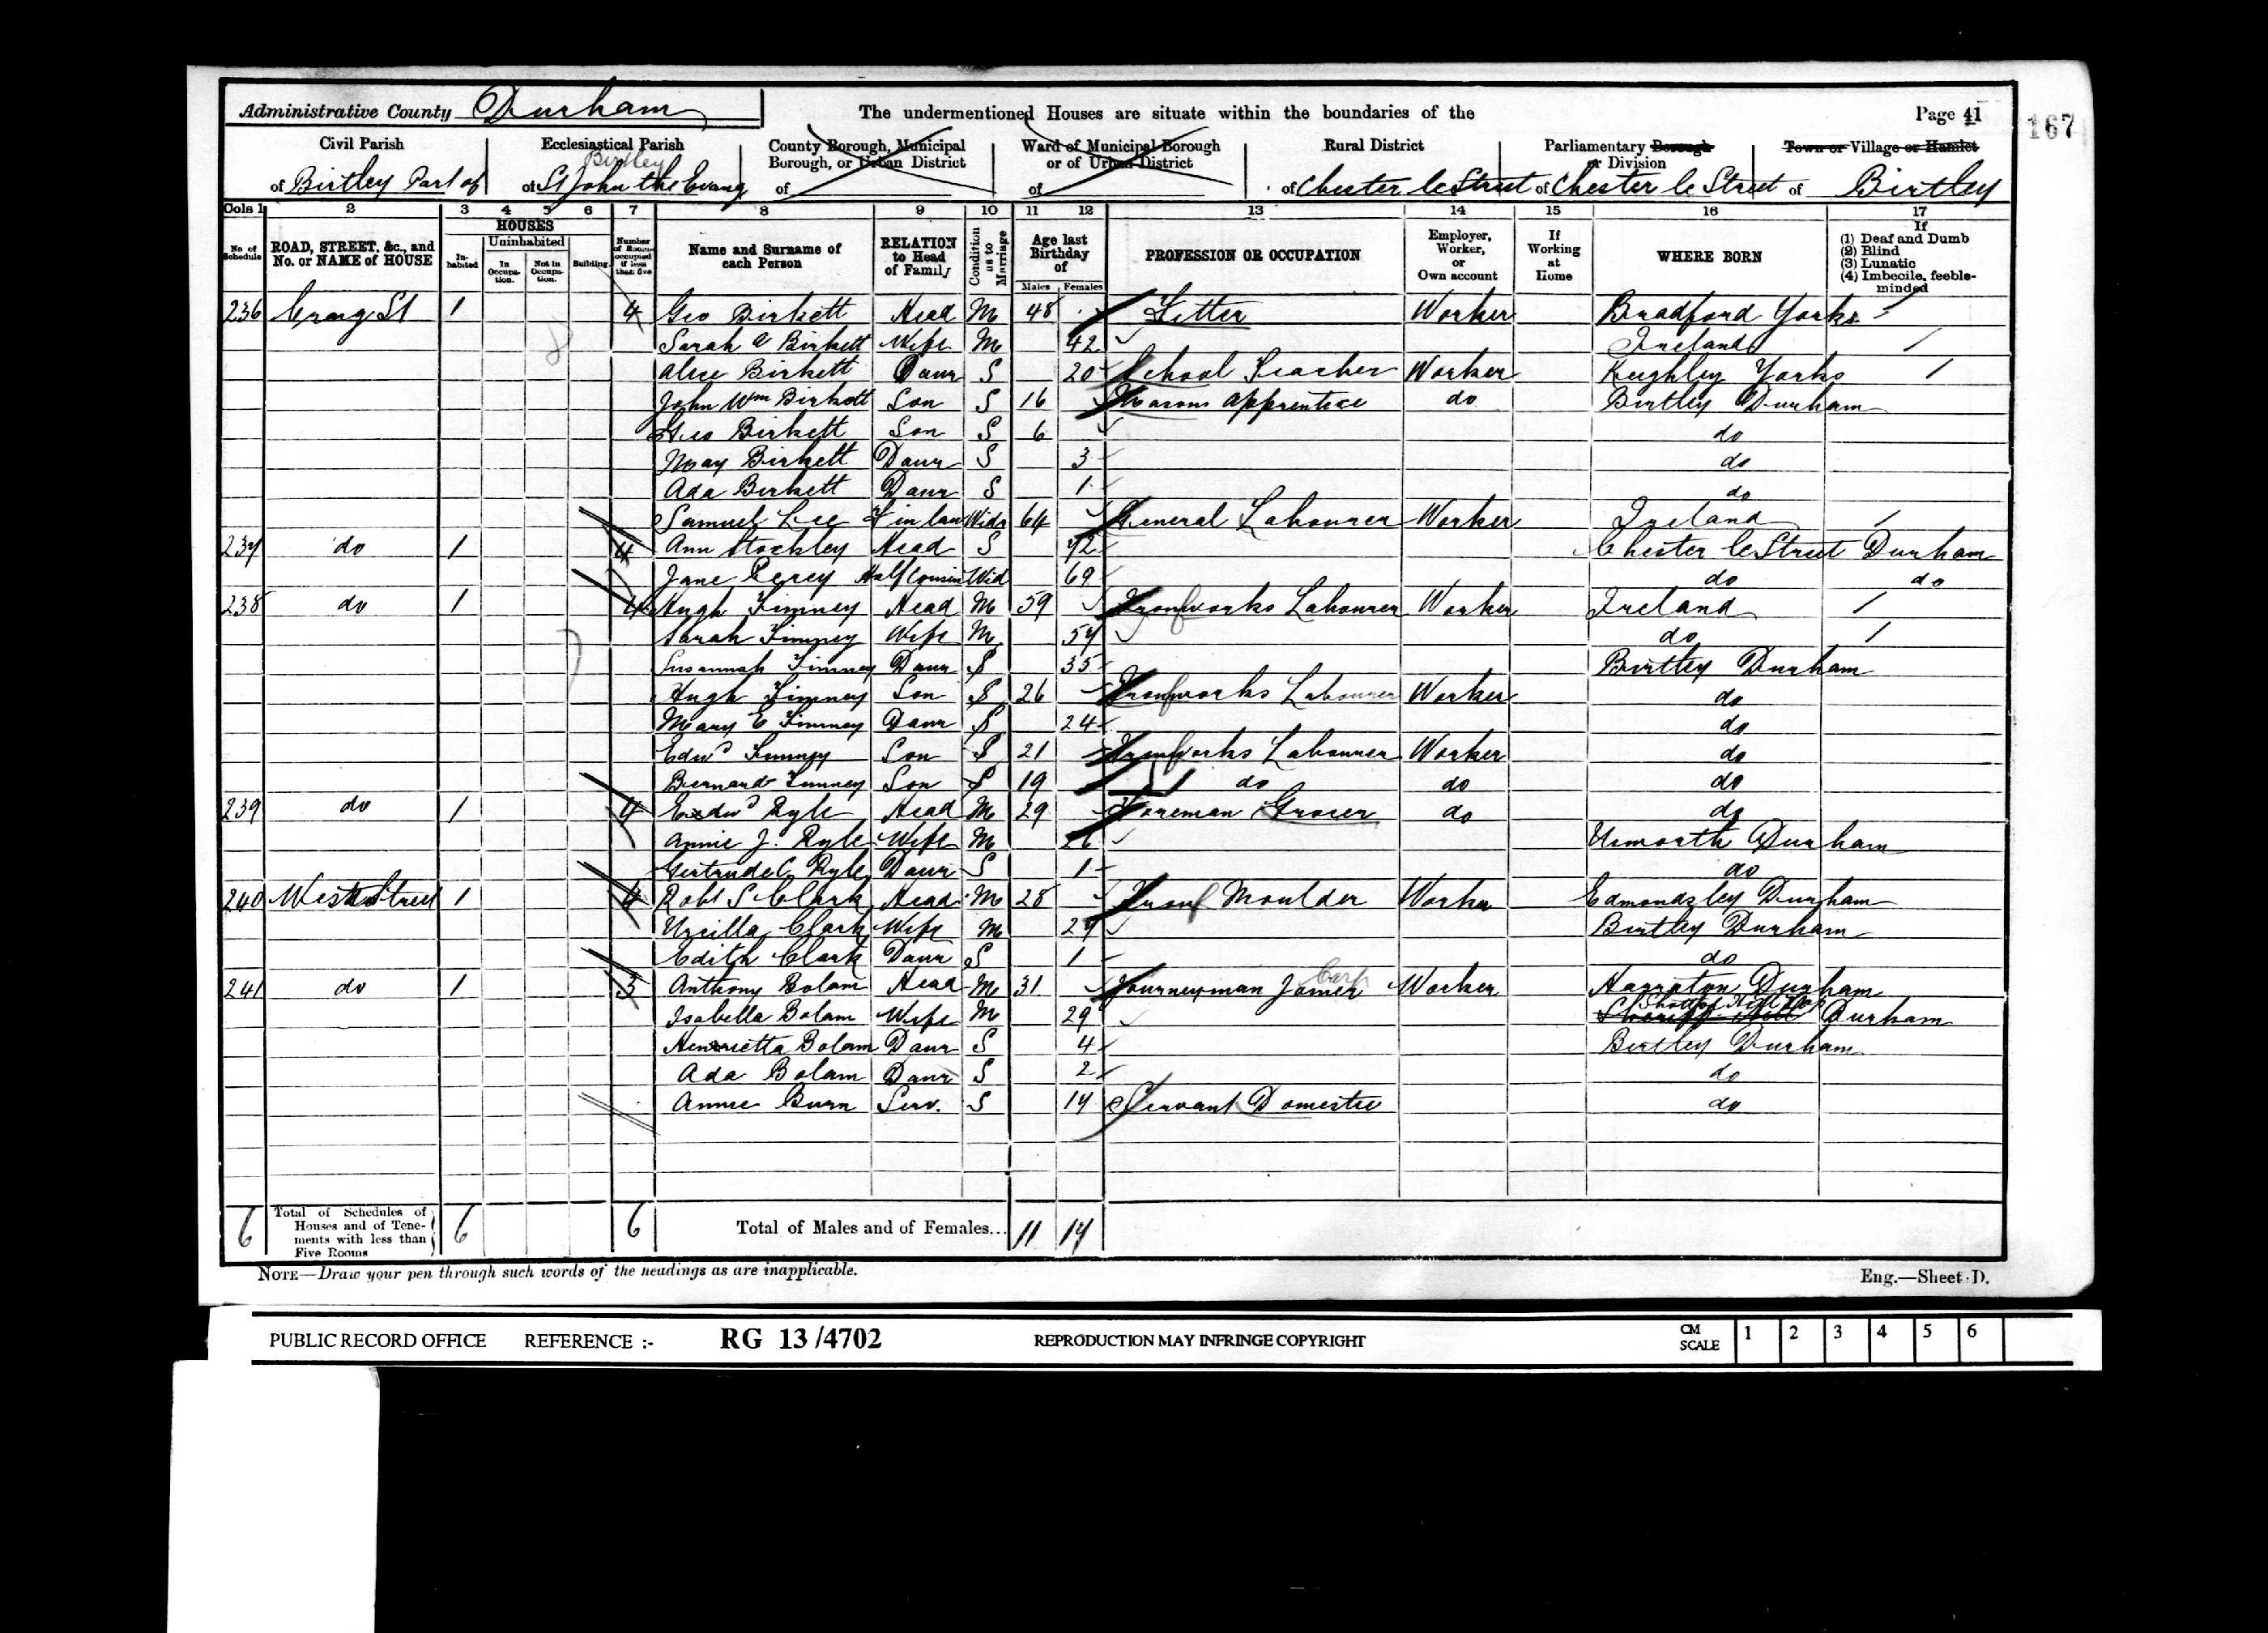 Administrative County Durham The undermentioned Houses are situate within the boundaries of the Page 41
167
Civil Parish Ecclesiastical Parish County Borough, Municipal Borough, or Urban District Ward of Municipal Borough or of Urban District Rural District Parliamentary Borough or Division Town or Village or Hamlet
Birtley
of Birtley Part of of St John the Evang of of of Chester le Street of Chester le Street of Birtley
Cols 1 2 3 4 5 6 7 8 9 10 11 12 13 14 15 16 17
No. of Schedule ROAD, STREET, &c., and No. or NAME of HOUSE HOUSES Inhabited Uninhabited In Occupation. Not in Occupation. Building. Number of Rooms occupied if less than five Name and Surname of each Person RELATION to Head of Family Condition as to Marriage Age last Birthday of Males Females PROFESSION OR OCCUPATION Employer, Worker, or Own account If Working at Home WHERE BORN If (1) Deaf and Dumb (2) Blind (3) Lunatic (4) Imbecile, feeble-minded
236 Craig St 1 4 Geo Birkett Head M 48 Fitter Worker Bradford Yorks
Sarah A Birkett Wife M 42 Ireland
Alice Birkett Daur S 20 School Teacher Worker Keighley Yorks
John Wm Birkett Son S 16 Masons Apprentice do Birtley Durham
Geo Birkett Son S 6 do
May Birkett Daur S 3 do
Ada Birkett Daur S 1 do
Samuel Lee F in law Widr 64 General Labourer Worker Ireland
237 do 1 4 Ann Stockley Head S 72 Chester le Street Durham
Jane Percy Half Cousin Wid 69 do do
238 do 1 4 Hugh Finney Head M 59 Ironworks Labourer Worker Ireland
Sarah Finney Wife M 57 do
Susannah Finney Daur S 35 Birtley Durham
Hugh Finney Son S 26 Ironworks Labourer Worker do
Mary E Finney Daur S 24 do
Edwd Finney Son S 21 Ironworks Labourer Worker do
Bernard Finney Son S 19 do do do
239 do 1 4 Edwd Ryle Head M 29 Foreman Grocer do do
Annie J. Ryle Wife M 26 Usworth Durham
Gertrude C Ryle Daur S 1 do
240 West Street 1 4 Robt S Clark Head M 28 Iron Moulder Worker Edmondsley Durham
Urcilla Clark Wife M 27 Birtley Durham
Edith Clark Daur S 1 do
241 do 1 3 Anthony Bolam Head M 31 Journeyman Joiner Carp Worker Harraton Durham
Isabella Bolam Wife M 29 Sheriff Hill Durham
Henrietta Bolam Daur S 4 Birtley Durham
Ada Bolam Daur S 2 do
Annie Burn Serv. S 17 Servant Domestic do
6 Total of Schedules of Houses and of Tenements with less than Five Rooms 6 6 Total of Males and of Females... 11 17
NOTE—Draw your pen through such words of the headings as are inapplicable. Eng.—Sheet D.
PUBLIC RECORD OFFICE REFERENCE :- RG 13/4702 REPRODUCTION MAY INFRINGE COPYRIGHT CM SCALE 1 2 3 4 5 6